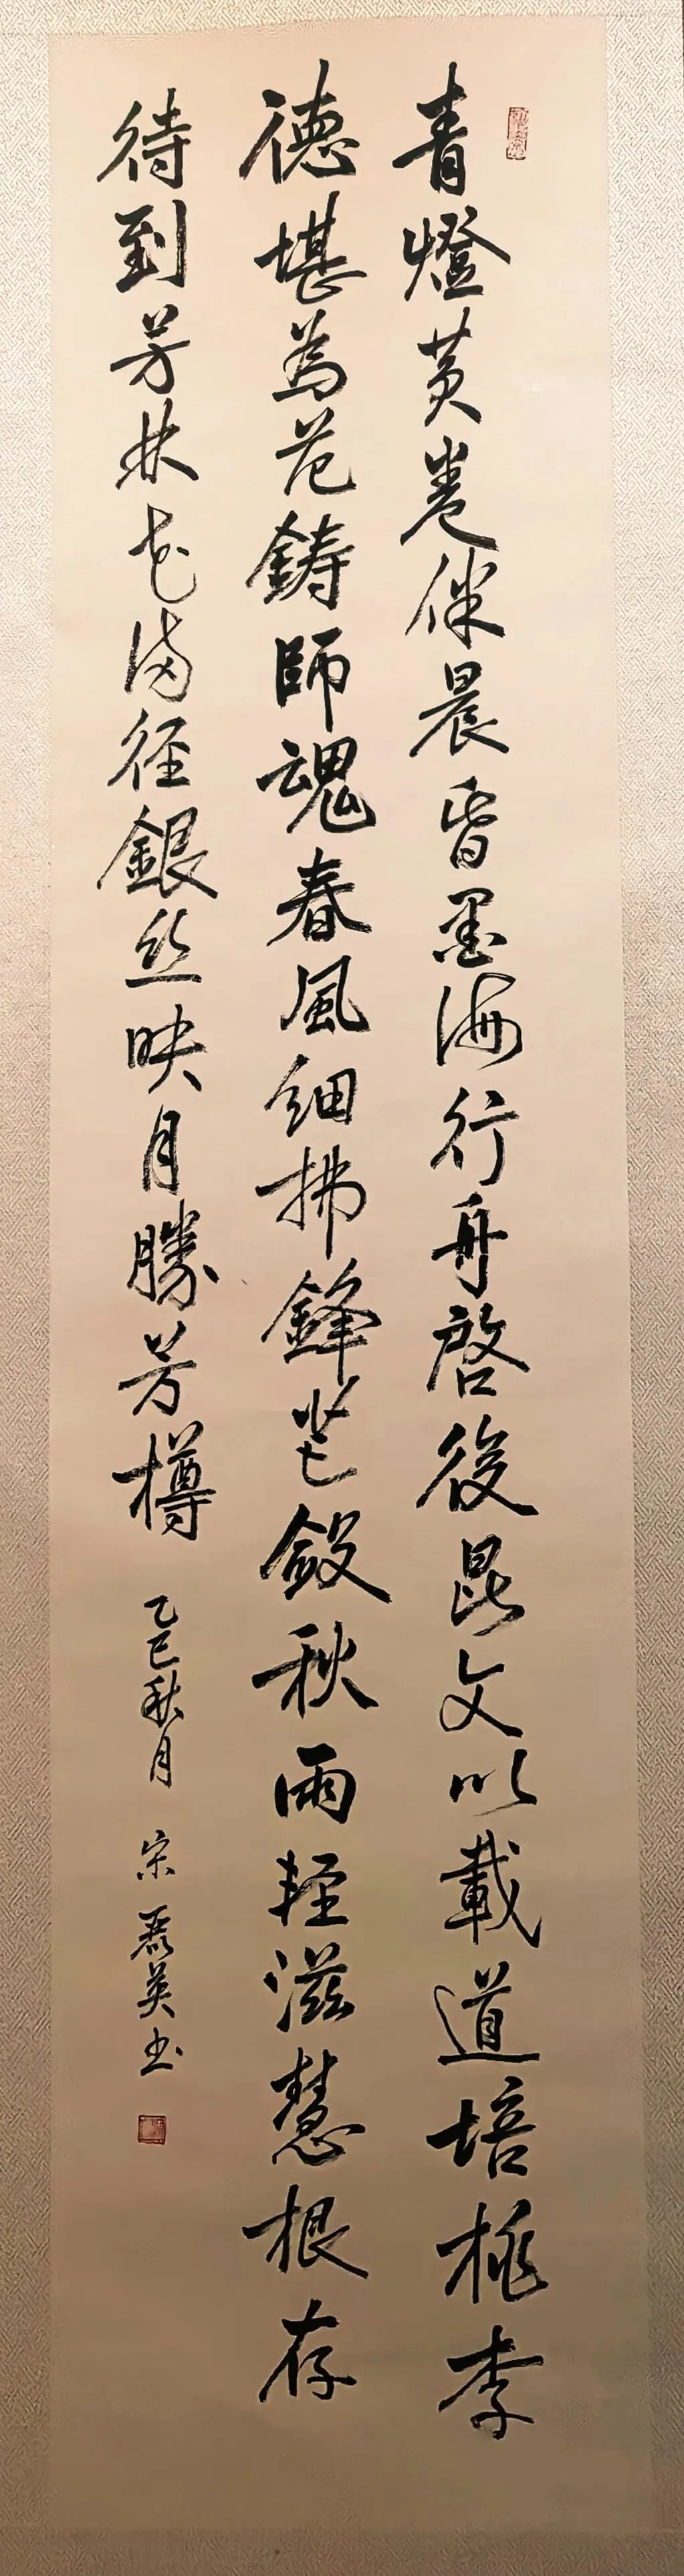 青燈黃卷伴晨昏墨海行舟啓後昆文以載道培桃李
德堪為范鑄師魂春風細拂鋒芒斂秋雨輕滋慧根存
待到芳林花滿徑銀丝映月勝芳樽
乙巳秋月 宋磊英书